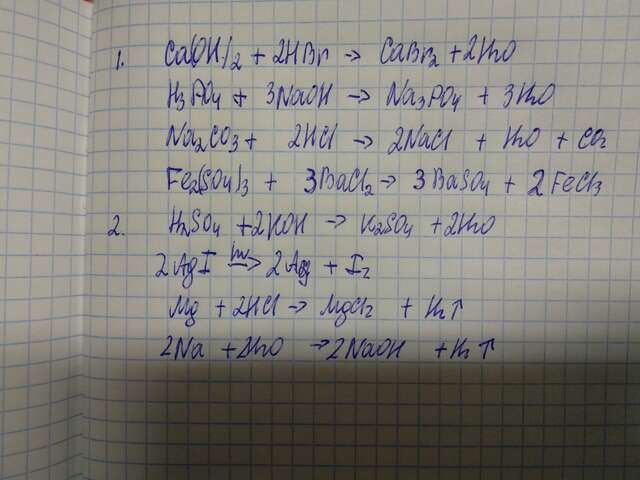 1. Ca(OH)2 + 2HBr → CaBr2 + 2H2O
H3PO4 + 3NaOH → Na3PO4 + 3H2O
Na2CO3 + 2HCl → 2NaCl + H2O + CO2
Fe2(SO4)3 + 3BaCl2 → 3BaSO4 + 2FeCl3
2. H2SO4 + 2KOH → K2SO4 + 2H2O
2AgI hν→ 2Ag + I2
Mg + 2HCl → MgCl2 + H2↑
2Na + 2H2O → 2NaOH + H2↑